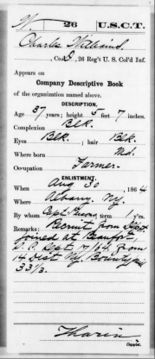 W 26 U.S.C.T.
Charles Williams
, Co. D, 26 Reg't U. S. Col'd Inf.
Appears on
Company Descriptive Book
of the organization named above.
DESCRIPTION.
Age 37 years; height 5 feet 7 inches.
Complexion Blk.
Eyes Blk. ; hair Blk.
Where born Md.
Occupation Farmer.
ENLISTMENT.
When Aug 30 , 1864
Where Albany Ny.
By whom Capt ; term 1 y'rs.
Remarks: Recruit from Dept
Joined at Beaufort
S.C. Sept 7/64. From
14 Dist Ny. Bounty paid
33 1/3.
Tharin
Copyist.